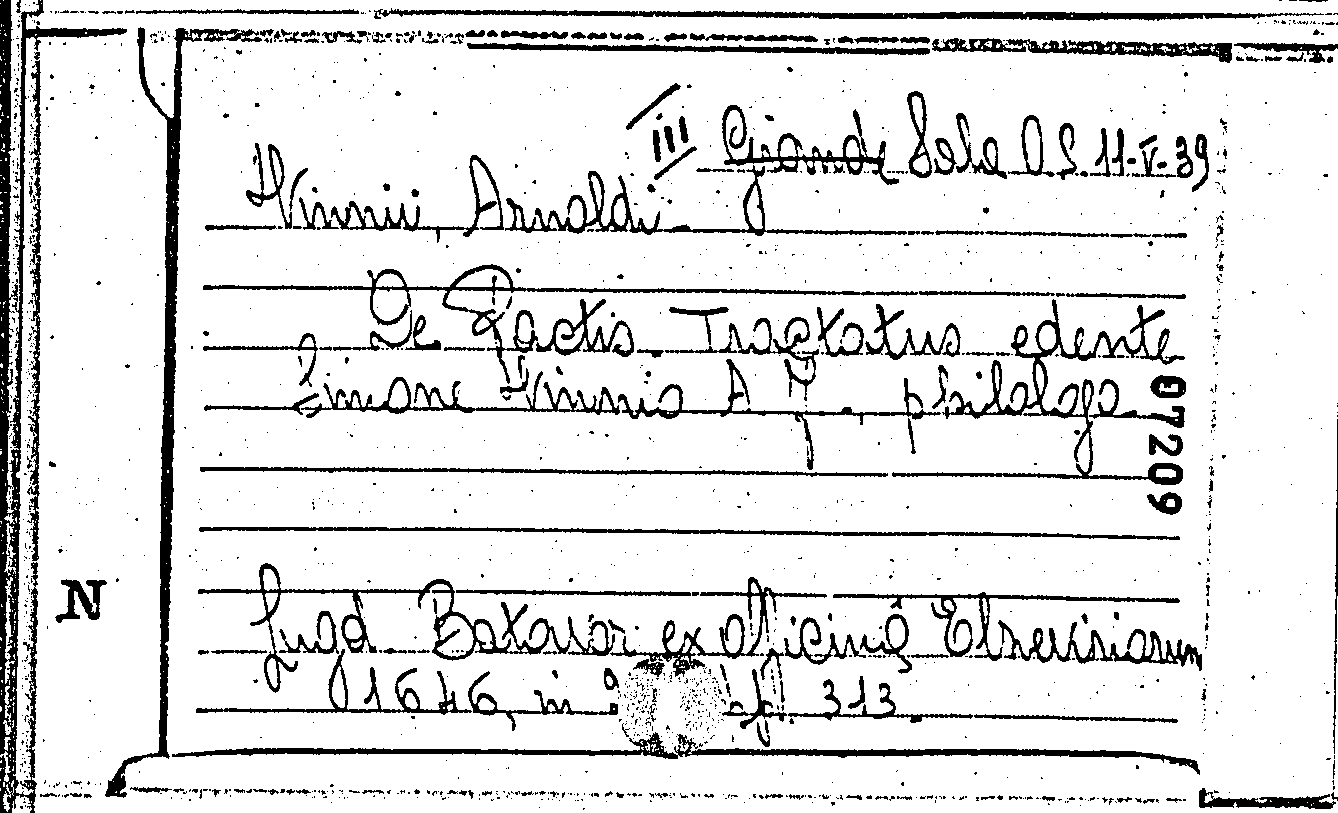 III Grande Sala O.S. 11-V-39
Vinnii, Arnoldi.
De Pactis Tractatus edente
Simone Vinnio A. F., philologo.
07209
N
Lugd. Batavor ex officinâ Elzeviriorum
1646, in pp. 313.